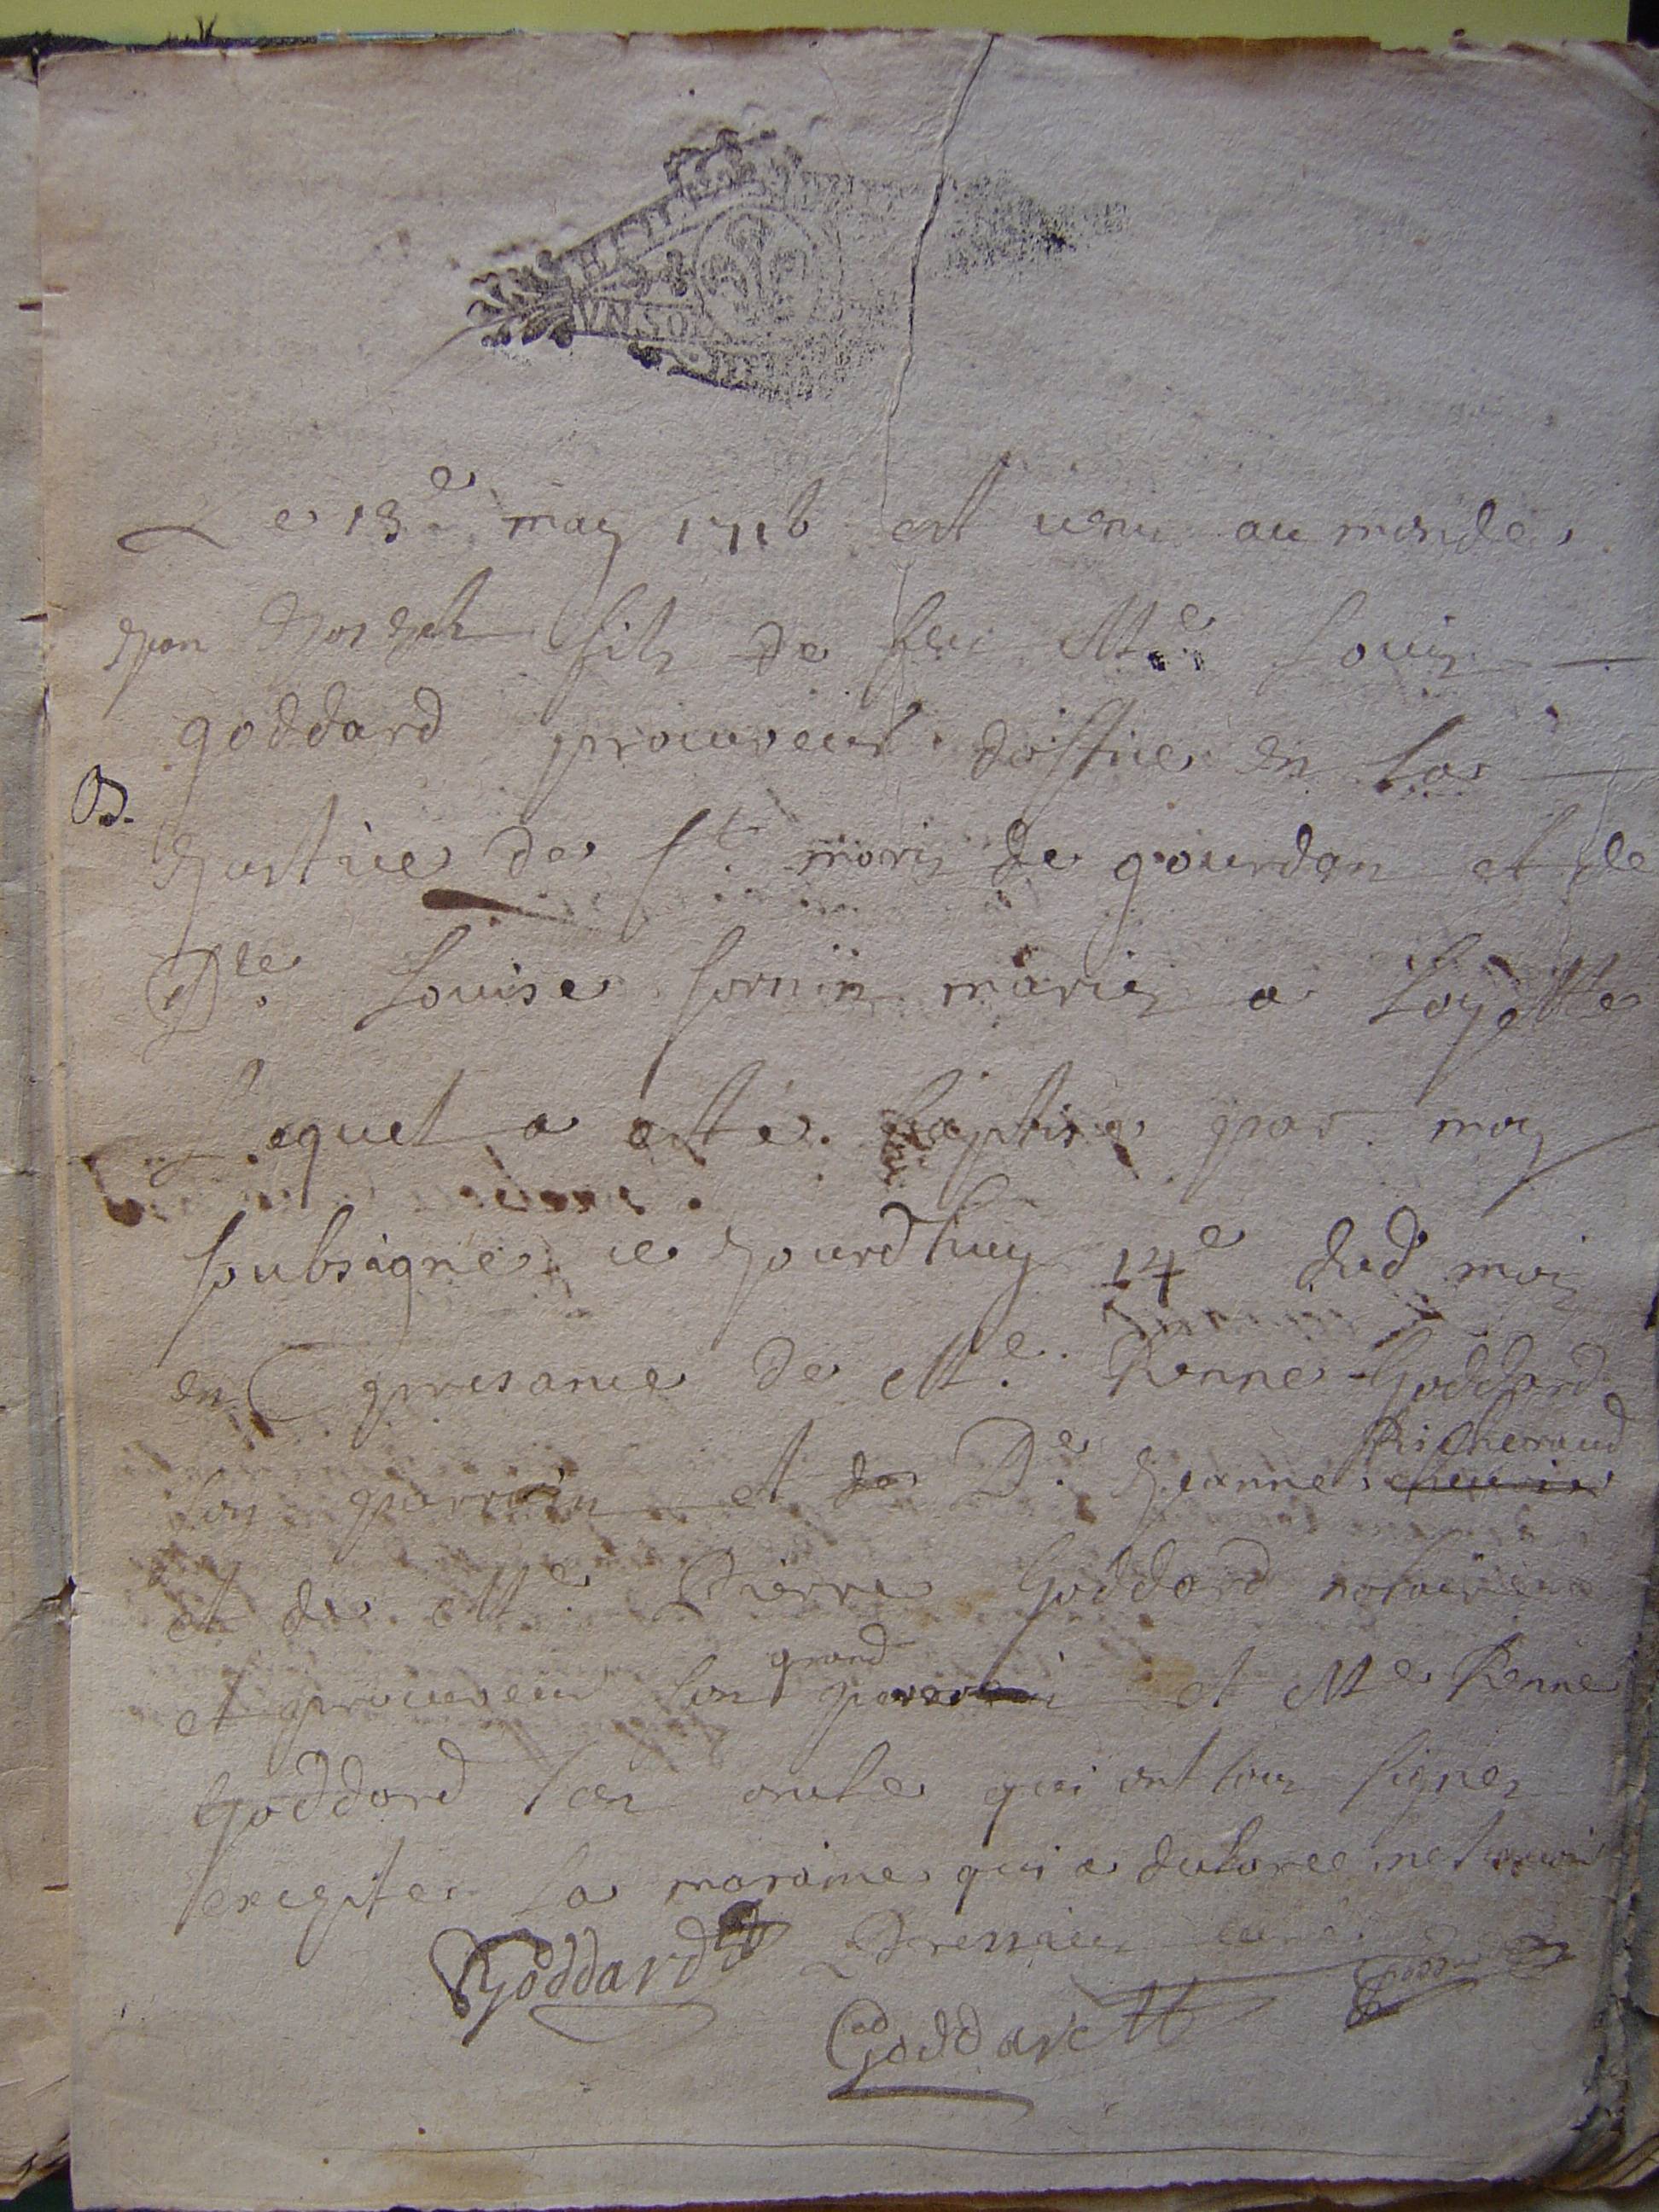 VN SOL
Le 13e may 1716 est venu au monde
Jean Joseph fils de feu Me Louis
goddard procureur doffice en la
B.
Justice de St moris de gourdan et de
Dlle Louise fornin maries a Loyette
Lequel a esté baptise par moy
soubsigne ce Jourdhuy 14e dud mois
en presance de Me Renne Goddard
Richeraud
son parrain et de De Jeanne
et de Me Pierre Goddard notaire
grand
et procureur son pere et Me Renne
Goddard son oncle qui ont tous signes
excepte la maraine qui a declaree ne
Goddard Bressieu curé Goddard
Goddard